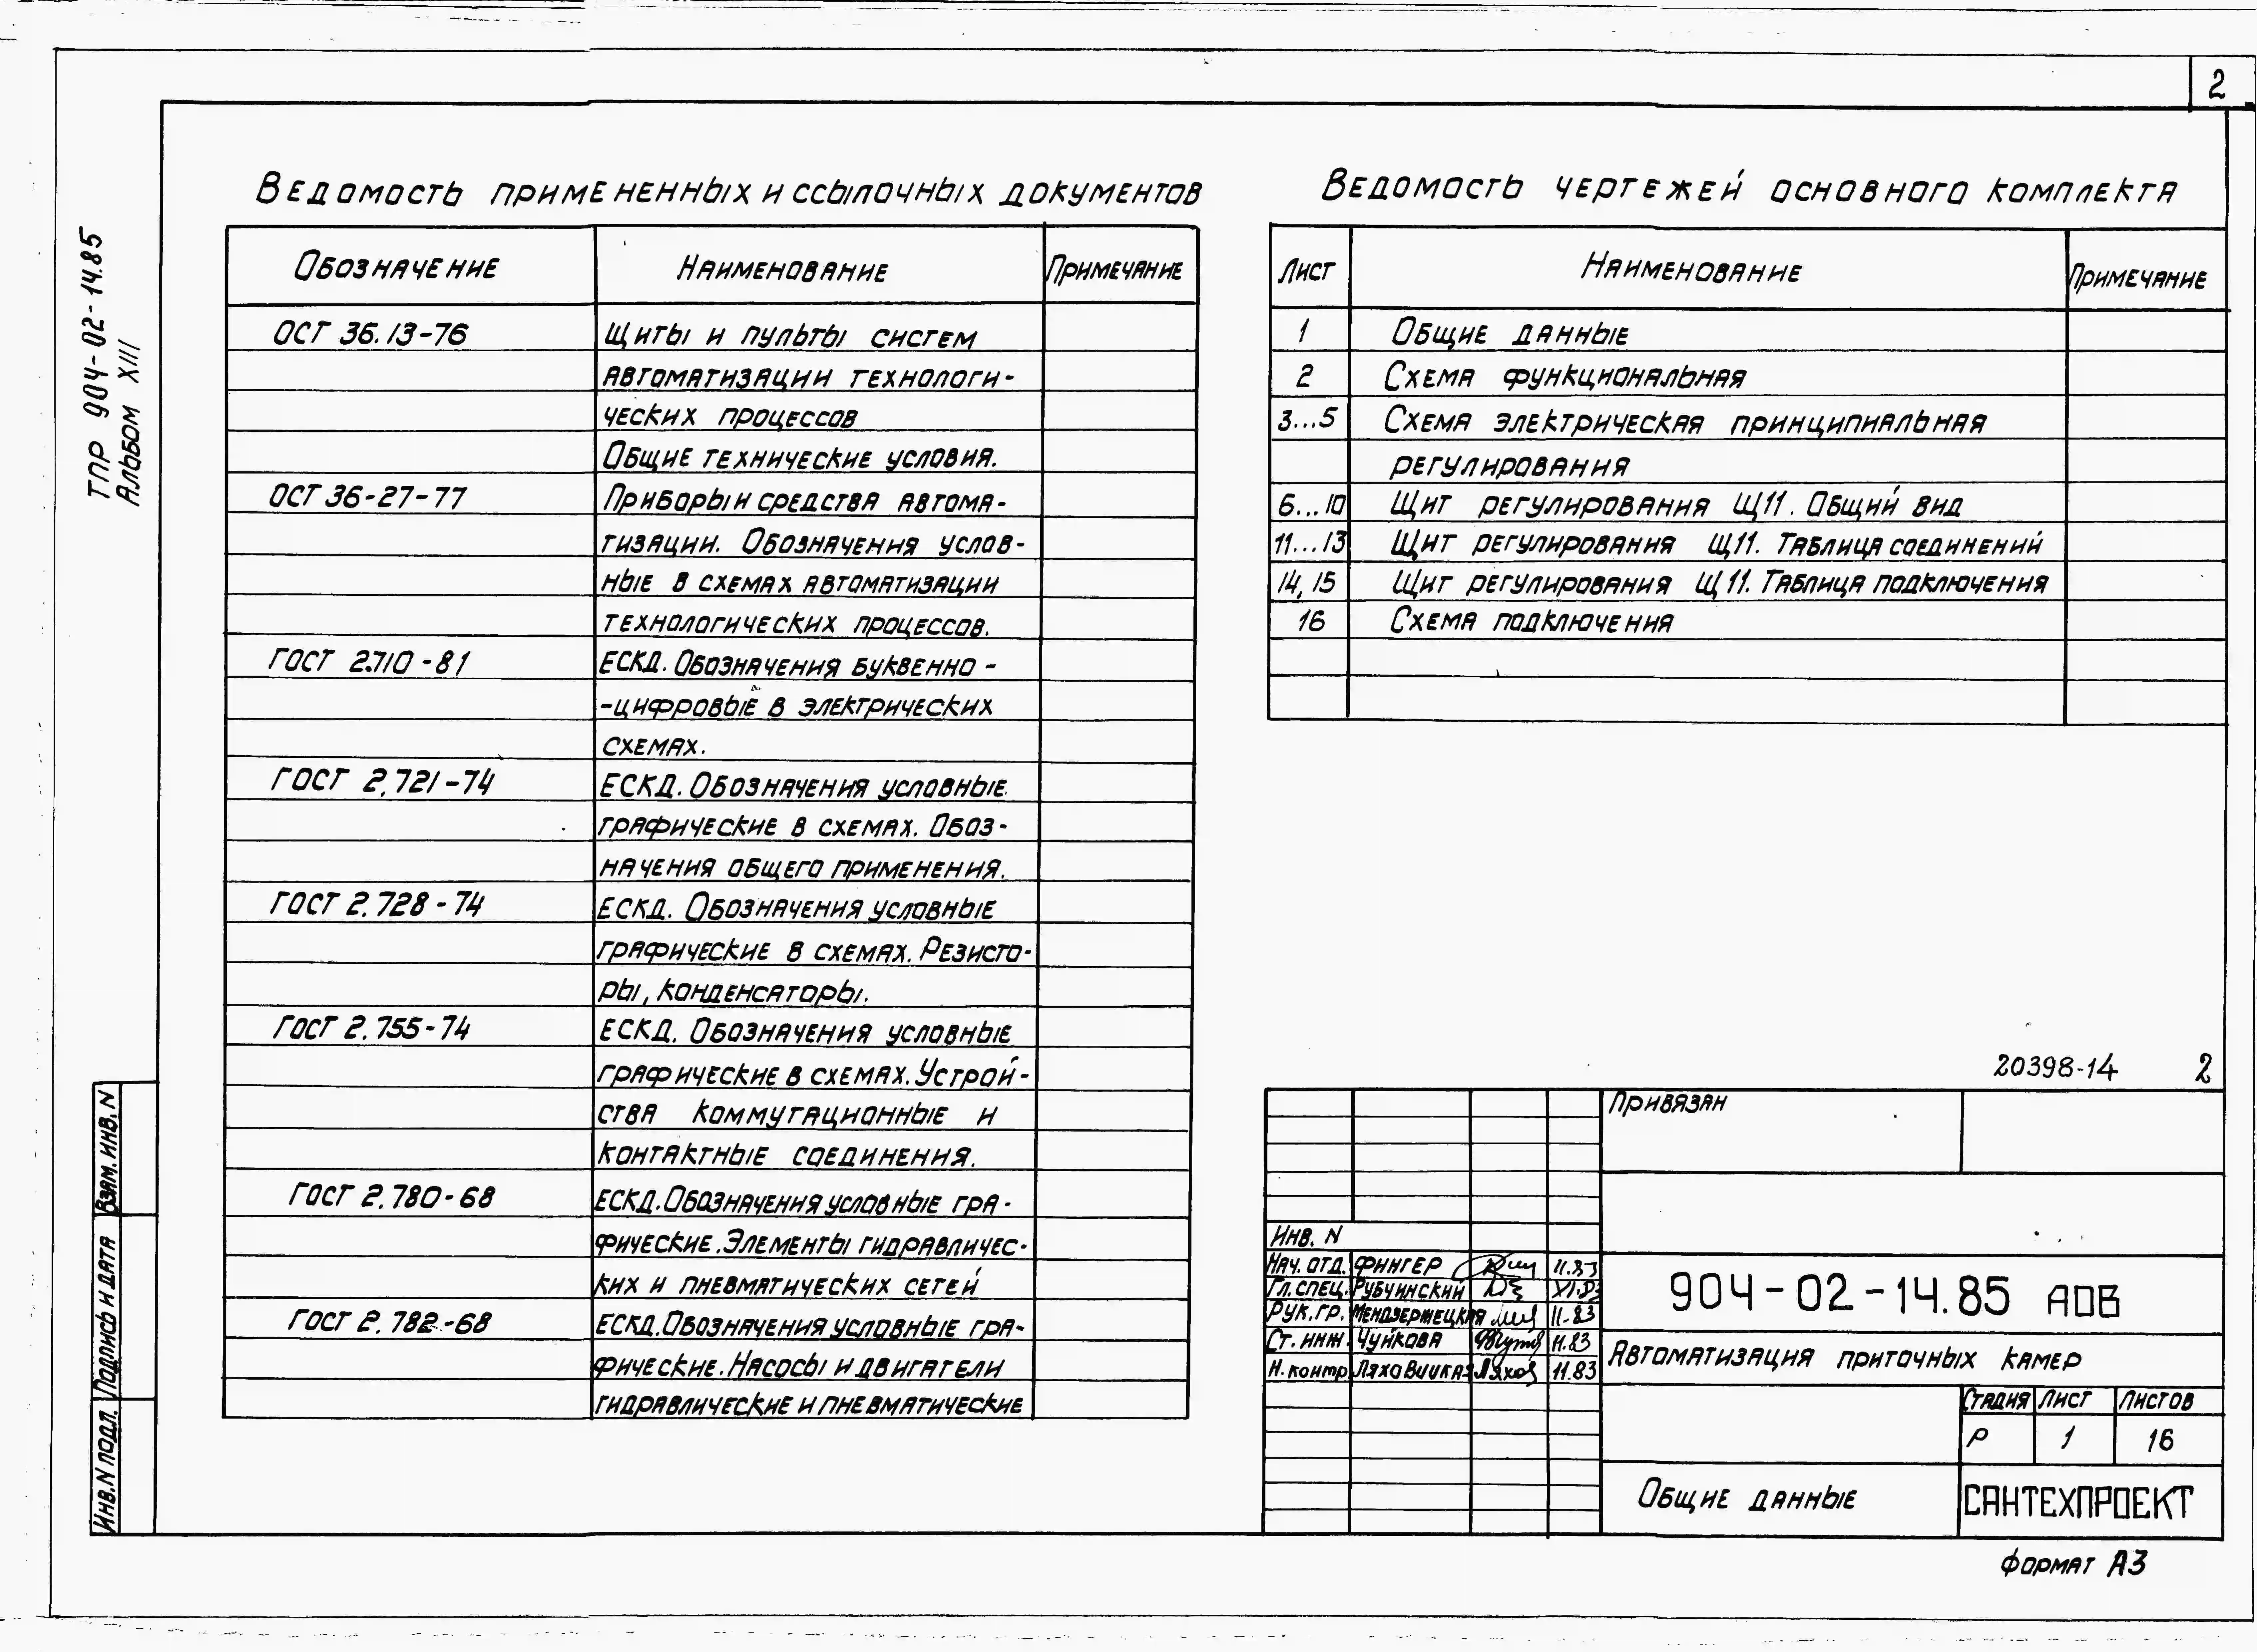 2
ТПР 904-02-14.85
Альбом XIII
Ведомость примененных и ссылочных документов
Обозначение Наименование Примечание
ОСТ 36.13-76 Щиты и пульты систем
автоматизации технологи-
ческих процессов
Общие технические условия.
ОСТ 36-27-77 Приборы и средства автома-
тизации. Обозначения услов-
ные в схемах автоматизации
технологических процессов.
ГОСТ 2.710-81 ЕСКД. Обозначения буквенно-
-цифровые в электрических
схемах.
ГОСТ 2.721-74 ЕСКД. Обозначения условные
графические в схемах. Обоз-
начения общего применения.
ГОСТ 2.728-74 ЕСКД. Обозначения условные
графические в схемах. Резисто-
ры, конденсаторы.
ГОСТ 2.755-74 ЕСКД. Обозначения условные
графические в схемах. Устрой-
ства коммутационные и
контактные соединения.
ГОСТ 2.780-68 ЕСКД. Обозначения условные гра-
фические. Элементы гидравличес-
ких и пневматических сетей
ГОСТ 2.782-68 ЕСКД. Обозначения условные гра-
фические. Насосы и двигатели
гидравлические и пневматические
Ведомость чертежей основного комплекта
Лист Наименование Примечание
1 Общие данные
2 Схема функциональная
3...5 Схема электрическая принципиальная
регулирования
6...10 Щит регулирования Щ11. Общий вид
11...13 Щит регулирования Щ11. Таблица соединений
14,15 Щит регулирования Щ11. Таблица подключения
16 Схема подключения
20398-14 2
Привязан
Инв. N
Нач. отд. Фингер 11.83
Гл. спец. Рубчинский XI.83
Рук. гр. Мендзержецкая 11-83
Ст. инж. Чуйкова 11.83
Н. контр. Ляховицкая 11.83
904-02-14.85 АОВ
Автоматизация приточных камер
Стадия Лист Листов
Р 1 16
Общие данные
САНТЕХПРОЕКТ
Формат А3
Взам. инв. N
Подпись и дата
Инв. N подл.